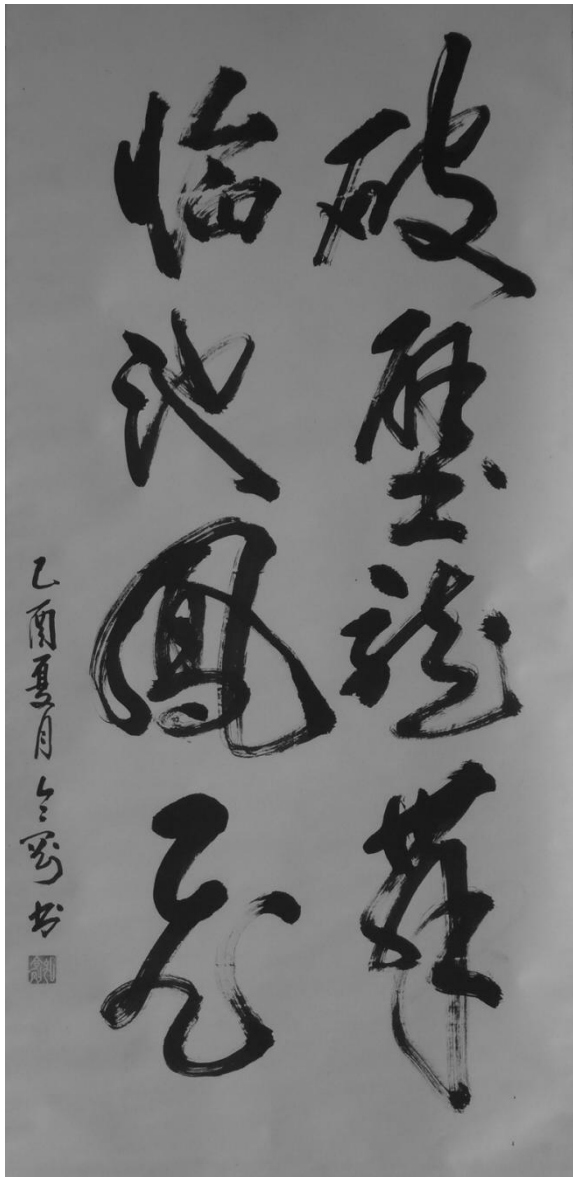 破壁龍舞
临池鳳飛
乙酉夏月
书